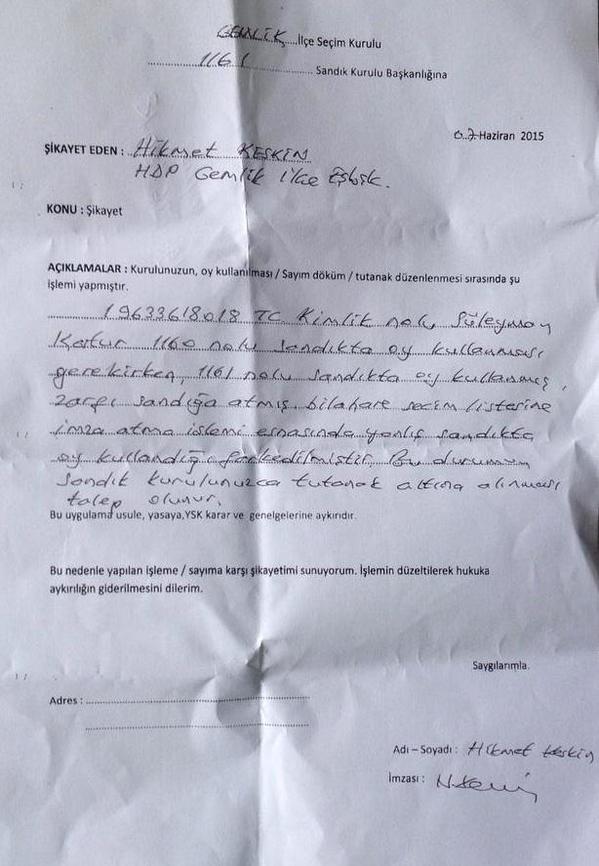 GEMLİK İlçe Seçim Kurulu
1161 Sandık Kurulu Başkanlığına
07 Haziran 2015
ŞİKAYET EDEN : Hikmet KESKİN
HDP Gemlik ilçe Eşbşk.
KONU : Şikayet
AÇIKLAMALAR : Kurulunuzun, oy kullanılması / Sayım döküm / tutanak düzenlenmesi sırasında şu
işlemi yapmıştır.
19633618018 TC Kimlik nolu Süleyman
1160 nolu sandıkta oy kullanması
gerekirken, 1161 nolu sandıkta oy kullanmış,
zarfı sandığa atmış, bilahare seçim listerine
imza atma işlemi esnasında yanlış sandıkta
oy kullandığı farkedilmiştir. Bu durumun
Sandık kurulunuzca tutanak altına alınması
talep olunur.
Bu uygulama usule, yasaya,YSK karar ve genelgelerine aykırıdır.
Bu nedenle yapılan işleme / sayıma karşı şikayetimi sunuyorum. İşlemin düzeltilerek hukuka
aykırılığın giderilmesini dilerim.
Saygılarımla.
Adres :
Adı – Soyadı : Hikmet Keskin
İmzası :